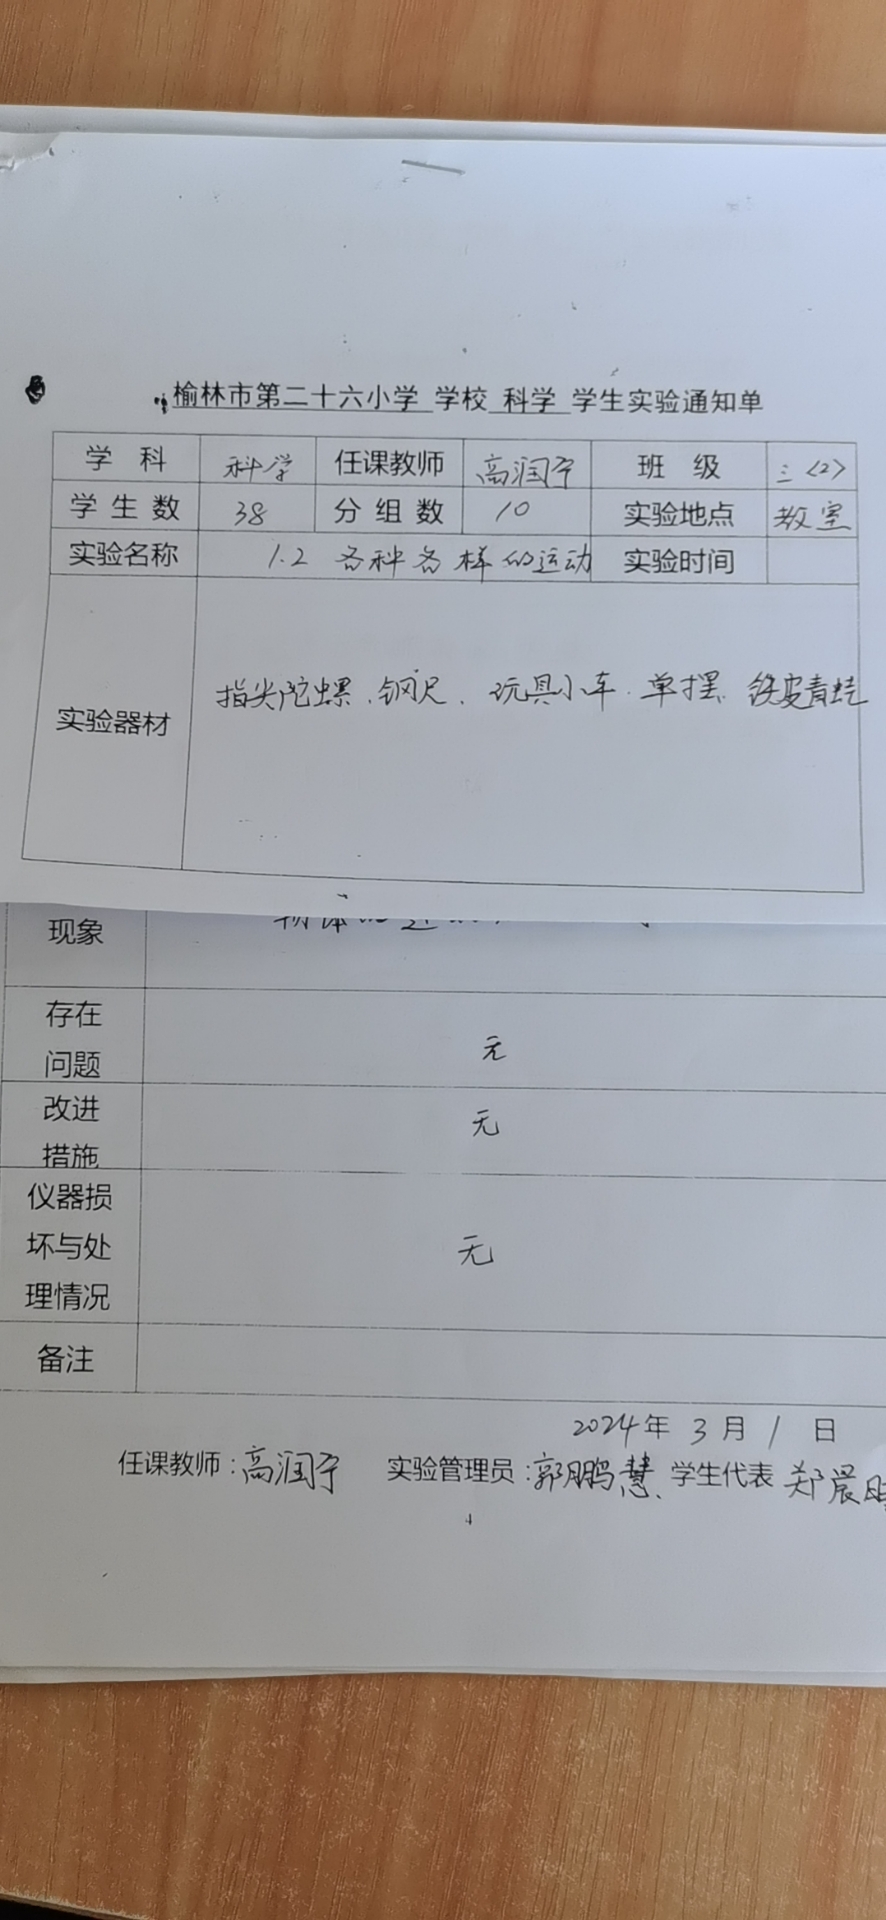 榆林市第二十六小学 学校 科学 学生实验通知单
学 科 科学 任课教师 高润宁 班 级 三<2>
学 生 数 38 分 组 数 10 实验地点 教室
实验名称 1.2 各种各样的运动 实验时间
实验器材 指尖陀螺、钢尺、玩具小车、单摆、铁皮青蛙
现象
存在
问题 无
改进
措施 无
仪器损
坏与处
理情况 无
备注
2024年 3月 1 日
任课教师:高润宁 实验管理员:郭鹏慧、学生代表 郑晨
4